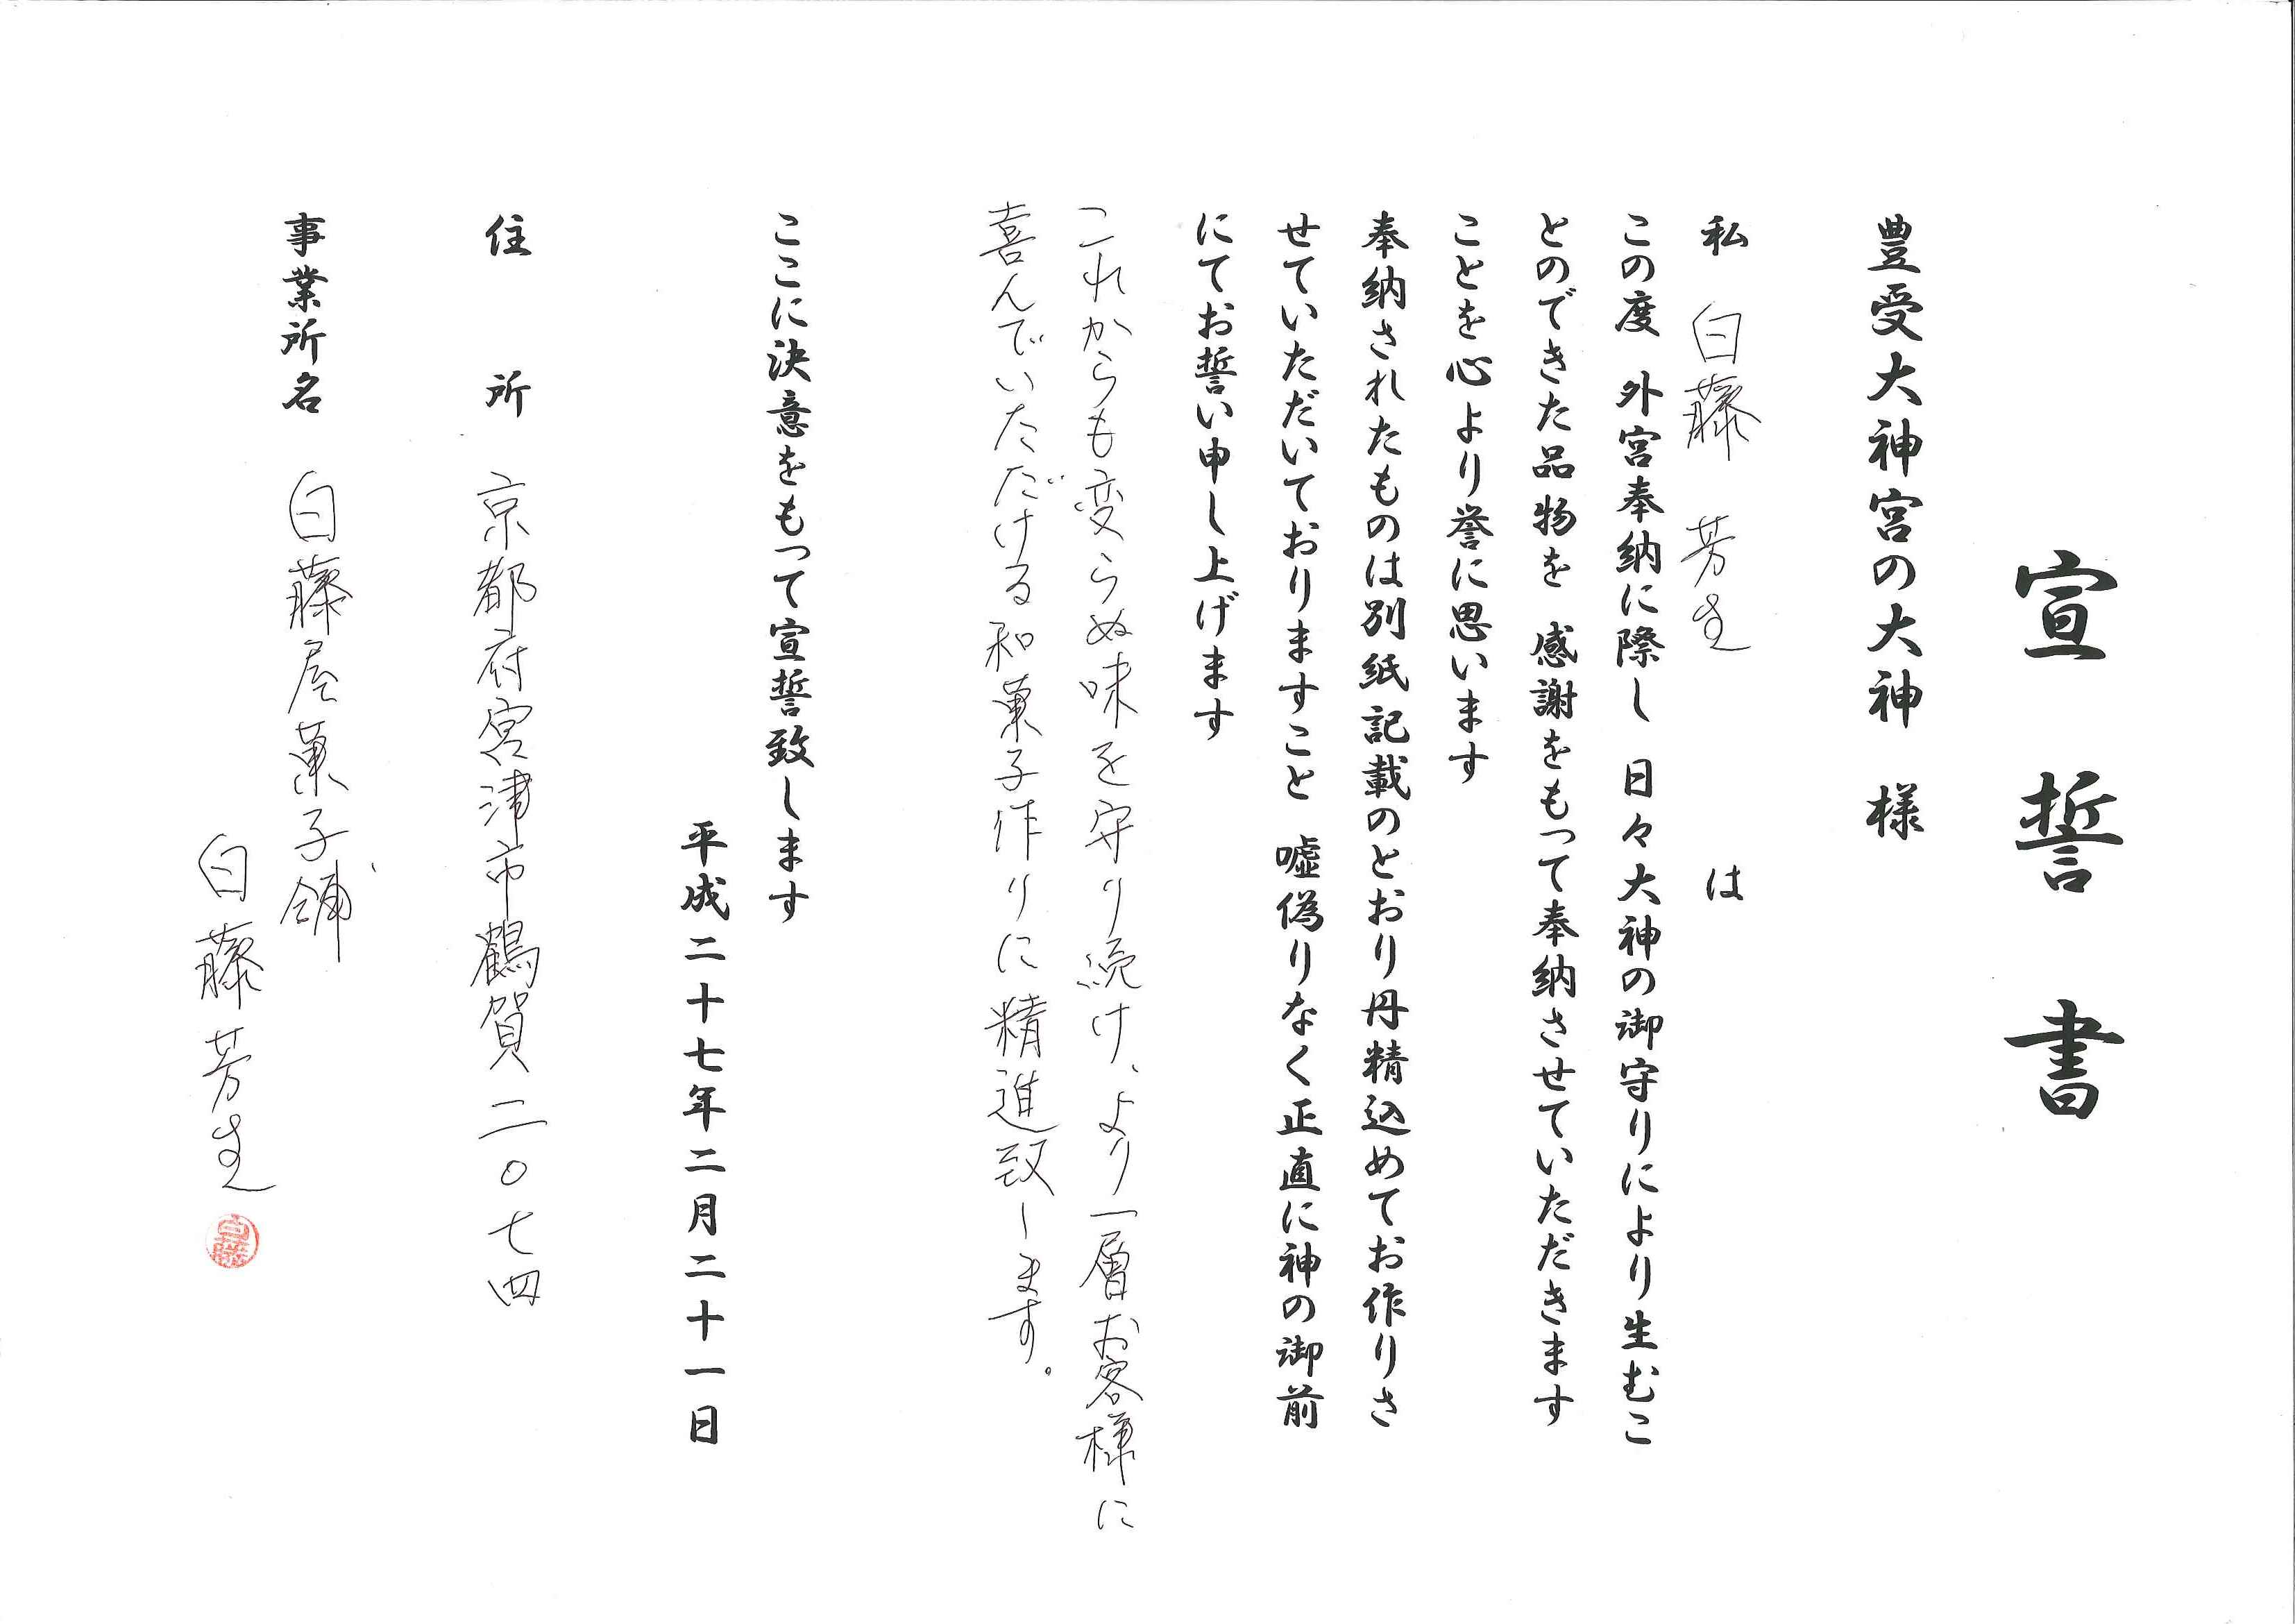 宣誓書
豊受大神宮の大神　様
私　白藤　芳生　は
この度　外宮奉納に際し　日々大神の御守りにより生むこ
とのできた品物を　感謝をもって奉納させていただきます
ことを心より誉に思います
奉納されたものは別紙記載のとおり丹精込めてお作りさ
せていただいておりますこと　嘘偽りなく正直に神の御前
にてお誓い申し上げます
これからも変らぬ味を守り続け、より一層お客様に
喜んでいただける和菓子作りに精進致します。
ここに決意をもって宣誓致します
平成二十七年二月二十一日
住所　京都府宮津市鶴賀二〇七四
事業所名　白藤屋菓子舗
白藤芳生
白藤